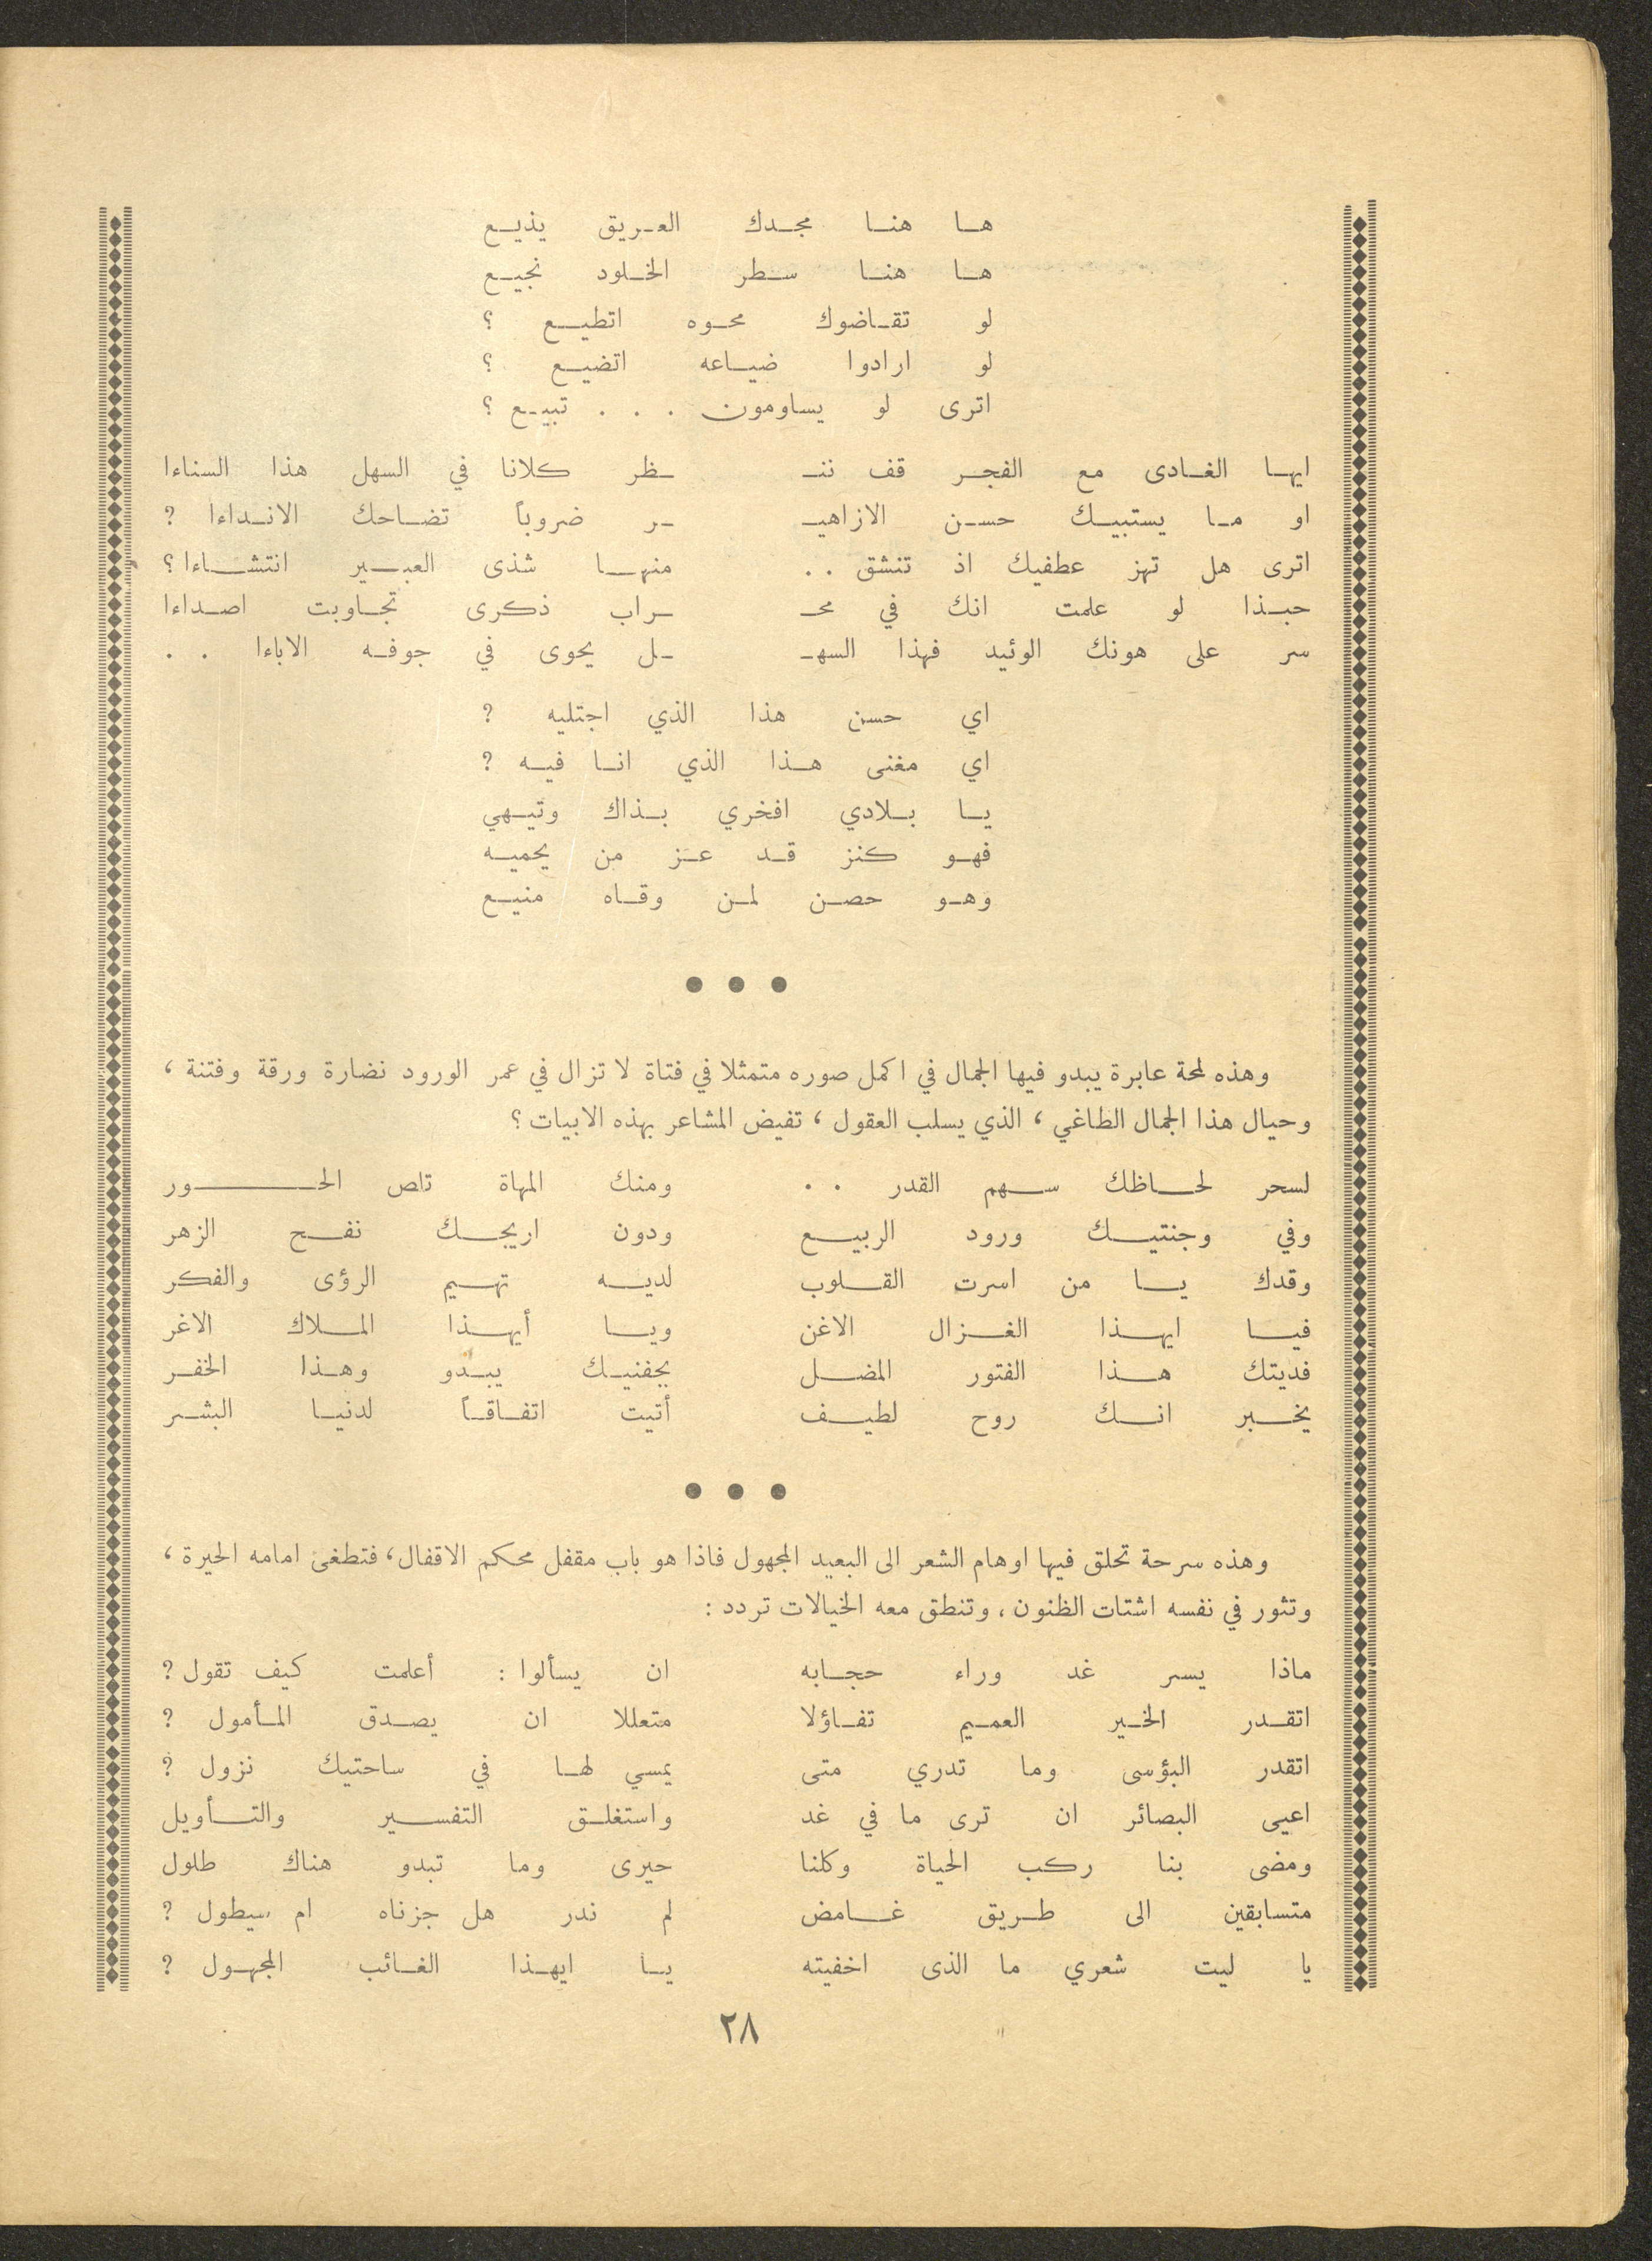 ها هنا مجدك العريق يذيع
ها هنا سطر الخلود نجيع
لو تقاضوك محوه اتطيع ؟
لو ارادوا ضياعه اتضيع ؟
اترى لو يساومون . . . تبيع ؟
ايها الغادى مع الفجر قف ننـ ـظر كلانا في السهل هذا السناءا
او ما يستبيك حسن الازاهيـ ـر ضروباً تضاحك الانداءا ؟
اترى هل تهز عطفيك اذ تنشق . . منها شذى العبير انتشاءا ؟
حبذا لو علمت انك في محـ ـراب ذكرى تجاوبت اصداءا
سر على هونك الوئيد فهذا السهـ ـل يحوى في جوفه الاباءا . .
اي حسن هذا الذي اجتليه ؟
اي مغنى هذا الذي انا فيه ؟
يا بلادي افخري بذاك وتيهي
فهو كنز قد عز من يحميه
وهو حصن لمن وقاه منيع
● ● ●
وهذه لمحة عابرة يبدو فيها الجمال في اكمل صوره متمثلا في فتاة لا تزال في عمر الورود نضارة ورقة وفتنة ،
وحيال هذا الجمال الطاغي ، الذي يسلب العقول ، تفيض المشاعر بهذه الابيات ؟
لسحر لحاظك سهم القدر . . ومنك المهاة تلص الحور
وفي وجنتيك ورود الربيع ودون اريجك نفح الزهر
وقدك يا من اسرت القلوب لديه تهيم الرؤى والفكر
فيا ايهذا الغزال الاغن ويا أيهذا الملاك الاغر
فديتك هذا الفتور المضل بجفنيك يبدو وهذا الخفر
يخبر انك روح لطيف أتيت اتفاقاً لدنيا البشر
● ● ●
وهذه سرحة تحلق فيها اوهام الشعر الى البعيد المجهول فاذا هو باب مقفل محكم الاقفال ، فتطغى امامه الحيرة ،
وتثور في نفسه اشتات الظنون ، وتنطق معه الخيالات تردد :
ماذا يسر غد وراء حجابه ان يسألوا : أعلمت كيف تقول ؟
اتقدر الخير العميم تفاؤلا متعللا ان يصدق المأمول ؟
اتقدر البؤسى وما تدري متى يمسي لها في ساحتيك نزول ؟
اعيى البصائر ان ترى ما في غد واستغلق التفسير والتأويل
ومضى بنا ركب الحياة وكلنا حيرى وما تبدو هناك طلول
متسابقين الى طريق غامض لم ندر هل جزناه ام سيطول ؟
يا ليت شعري ما الذى اخفيته يا ايهذا الغائب المجهول ؟
٢٨